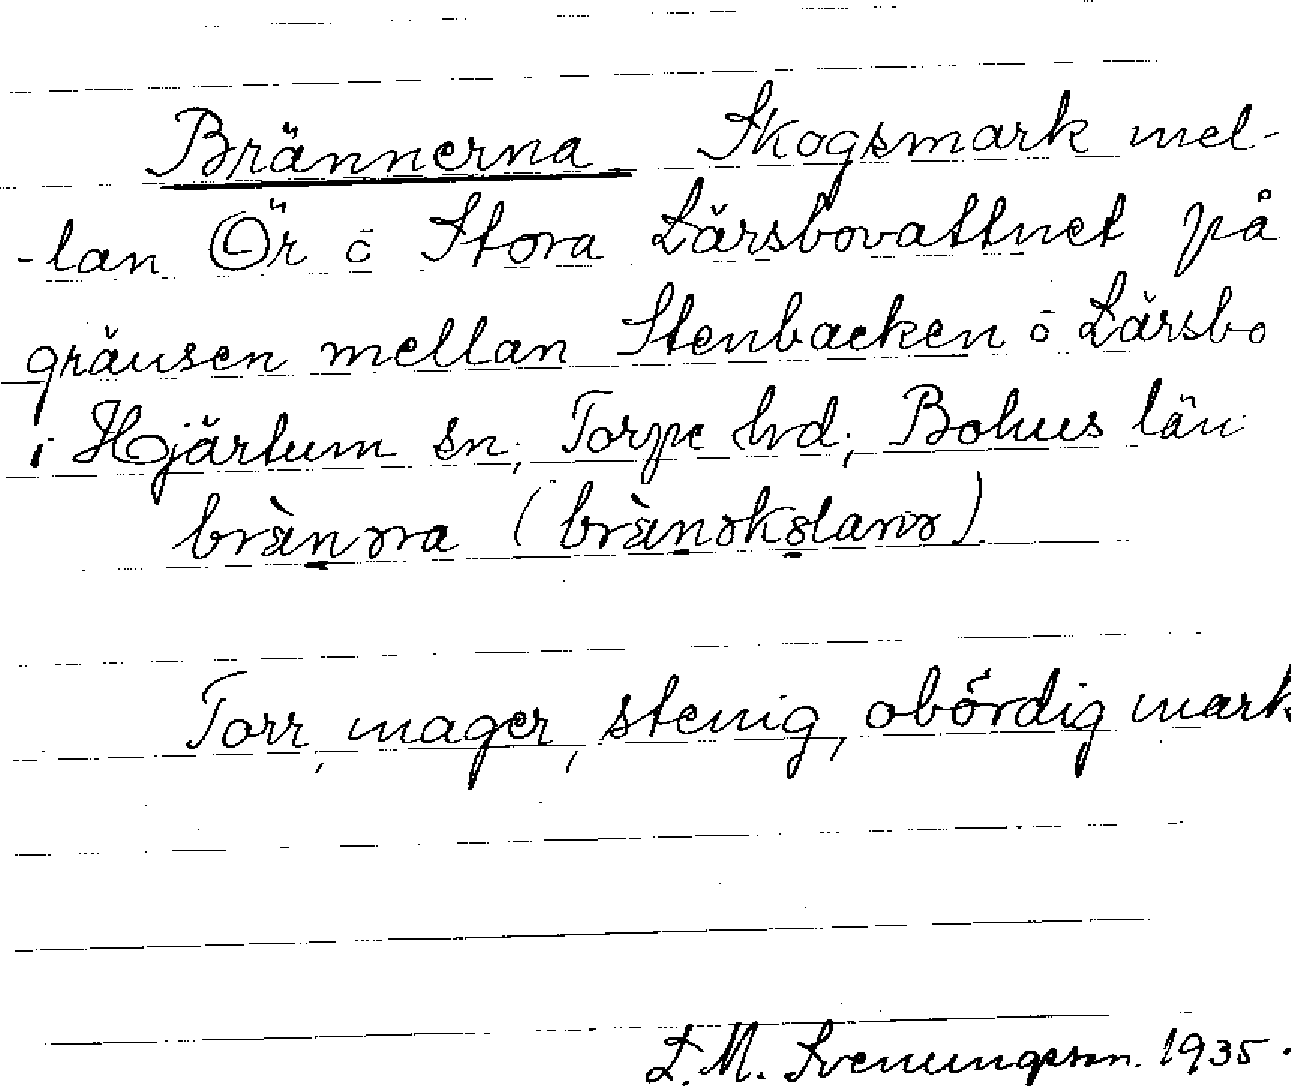 Brännerna Skogsmark mel-
-lan Ör o Stora Lärsbovattnet på
gränsen mellan Stenbacken o Lärsbo
i Hjärtum sn, Torpe hd, Bohus län
Torr, mager, stenig, obördig mark
L. M. Svenungsson. 1935.